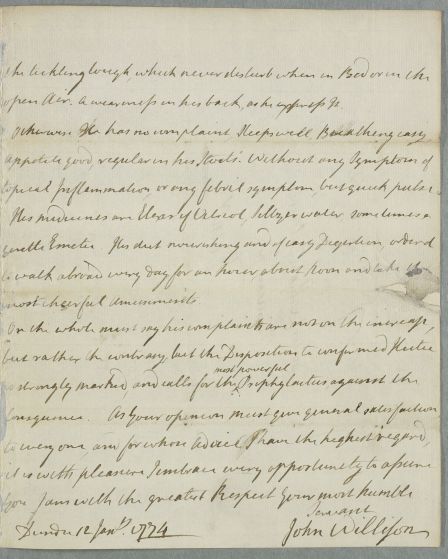 the tickling cough, which never disturb when in Bed or in the
open Air. a weariness in his back, as he express it.
Otherwise He has no complaint sleeps well, Breathing easy
appetite good, regular in his stools. Without any Symptoms of
topical Inflammation or any febril symptom, but quick pulse.
His medicines are Elixir of Vitriol, Seltzer water sometimes a
gentle Emetic. His diet nourishing and of easy Digestion, ordered
to walk abroad every day for an hour about Noon and take the
most cheerful amusements.
On the whole must say his complaints are not on the increase,
but rather the contrary, but the Disposition to confirmed Hectic
so strongly marked and calls for the most powerful Prophylactics against the
consequence. As Your opinion must give general satisfaction
to every one, and for whose advice I have the highest regard,
it is with pleasure I embrace every opportunity to assure
you I am with the greatest Respect Your most humble
Servant
Dundee 12 Jany. 1774 John Willison